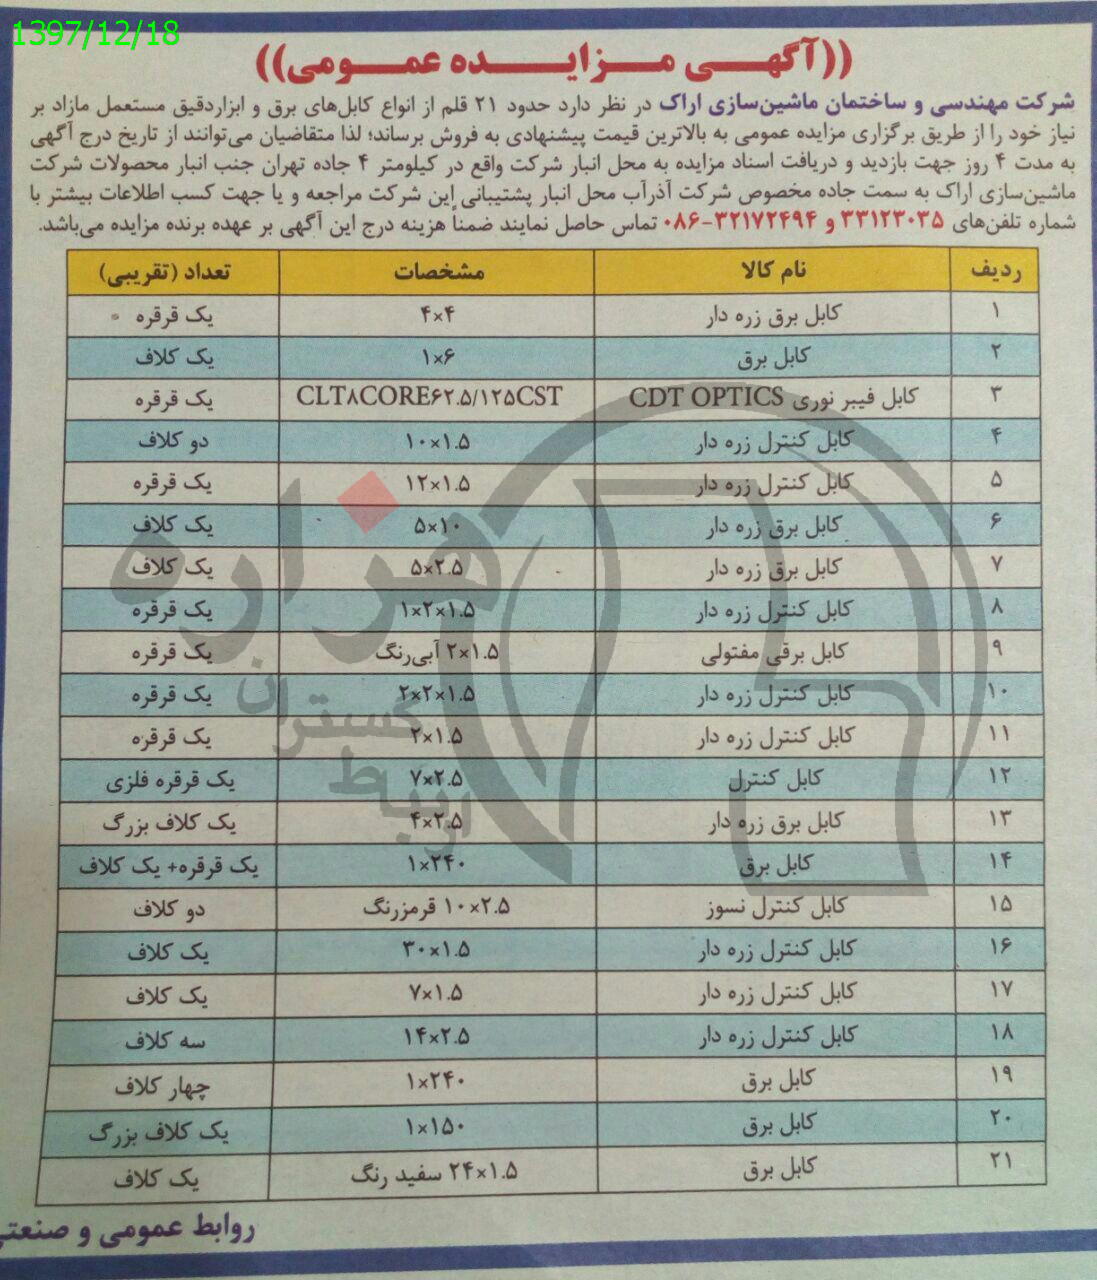 1397/12/18
((آگهـی مـزایـده عمـومی))
شرکت مهندسی و ساختمان ماشین‌سازی اراک در نظر دارد حدود ۲۱ قلم از انواع کابل‌های برق و ابزاردقیق مستعمل مازاد بر
نیاز خود را از طریق برگزاری مزایده عمومی به بالاترین قیمت پیشنهادی به فروش برساند؛ لذا متقاضیان می‌توانند از تاریخ درج آگهی
به مدت ۴ روز جهت بازدید و دریافت اسناد مزایده به محل انبار شرکت واقع در کیلومتر ۴ جاده تهران جنب انبار محصولات شرکت
ماشین‌سازی اراک به سمت جاده مخصوص شرکت آذرآب محل انبار پشتیبانی این شرکت مراجعه و یا جهت کسب اطلاعات بیشتر با
شماره تلفن‌های ۳۳۱۲۳۰۳۵ و ۳۲۱۷۲۴۹۴-۰۸۶ تماس حاصل نمایند ضمناً هزینه درج این آگهی بر عهده برنده مزایده می‌باشد.
ردیف نام کالا مشخصات تعداد (تقریبی)
۱ کابل برق زره دار ۴×۴ یک قرقره
۲ کابل برق ۱×۶ یک کلاف
۳ کابل فیبر نوری CDT OPTICS CLT۸CORE۶۲.۵/۱۲۵CST یک قرقره
۴ کابل کنترل زره دار ۱۰×۱.۵ دو کلاف
۵ کابل کنترل زره دار ۱۲×۱.۵ یک قرقره
۶ کابل برق زره دار ۵×۱۰ یک کلاف
۷ کابل برق زره دار ۵×۲.۵ یک کلاف
۸ کابل کنترل زره دار ۱×۲×۱.۵ یک قرقره
۹ کابل برقی مفتولی ۲×۱.۵ آبی‌رنگ یک قرقره
۱۰ کابل کنترل زره دار ۲×۲×۱.۵ یک قرقره
۱۱ کابل کنترل زره دار ۲×۱.۵ یک قرقره
۱۲ کابل کنترل ۷×۲.۵ یک قرقره فلزی
۱۳ کابل برق زره دار ۴×۲.۵ یک کلاف بزرگ
۱۴ کابل برق ۱×۲۴۰ یک قرقره+ یک کلاف
۱۵ کابل کنترل نسوز ۱۰×۲.۵ قرمزرنگ دو کلاف
۱۶ کابل کنترل زره دار ۳۰×۱.۵ یک کلاف
۱۷ کابل کنترل زره دار ۷×۱.۵ یک کلاف
۱۸ کابل کنترل زره دار ۱۴×۲.۵ سه کلاف
۱۹ کابل برق ۱×۲۴۰ چهار کلاف
۲۰ کابل برق ۱×۱۵۰ یک کلاف بزرگ
۲۱ کابل برق ۲۴×۱.۵ سفید رنگ یک کلاف
روابط عمومی و صنعتی
هزاره
گستران
ارتباط